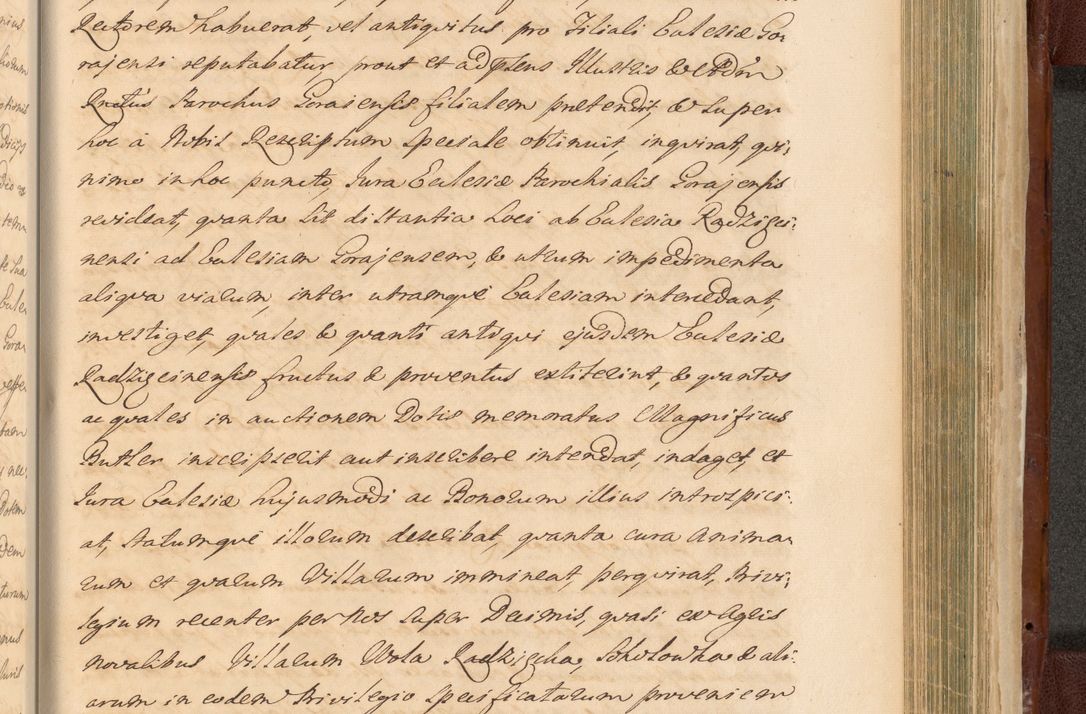 Rectorem habuerat, vel antiqvitus pro Filiali Eclesiæ Go⸗
rajensi reputabatur prout et ad psens Illustris & eodm
Rndus Parochus Gorajensis filialem prætendit, & super
hoc à Nobis Rescriptum speciale obtinuit, inqvirat, qvi⸗
nimo in hoc puncto, Jura Eclesiæ Parochialis Gorajensis
revideat, qvanta sit distantia Loci ab Eclesia Radzięci⸗
nensi ad Eclesiam Gorajensem, & utrum impedimenta
aliqva viarum, inter utramqvè Eclesiam intercedant,
investiget, qvales & qvanti antiqvi ejusdem Eclesiæ
Radzięcinensis fructus & proventus extiterint, & qvantos
ac qvales in auctionem Dotis memoratus Magnificus
Butler inscripserit aut inscribere intendat, indaget, et
Jura Eclesiæ hujusmodi ac Bonorum illius introspici⸗
at, statumqvè illorum describat, qvanta cura Anima⸗
rum et qvarum Villarum immineat, perqvirat, Privi⸗
legium recenter per Nos super Decimis, qvasi ex Agris
Novalibus Villarum Wola Radzięcka, Sokołowka & ali⸗
arum in eodem Privilegio specificatarum provenien